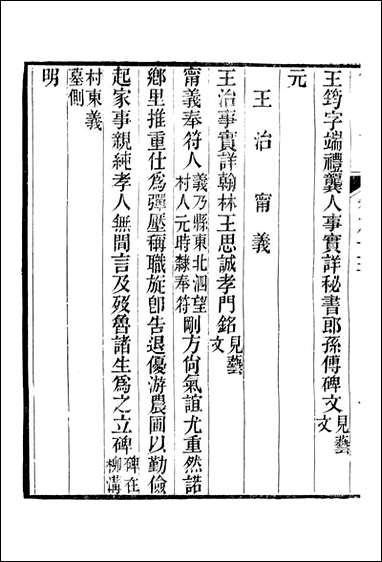 王筠字端禮龔人事實詳秘書郎孫傅碑文見藝文
元
王治 甯義
王治事實詳翰林王思誠孝門銘見藝文
甯義奉符人義乃縣東北泗望村人元時隸奉符剛方尙氣誼尤重然諾
鄉里推重仕爲彈壓稱職旋卽告退優游農圃以勤儉
起家事親純孝人無間言及歿魯諸生爲之立碑碑在柳溝
村東義墓側
明